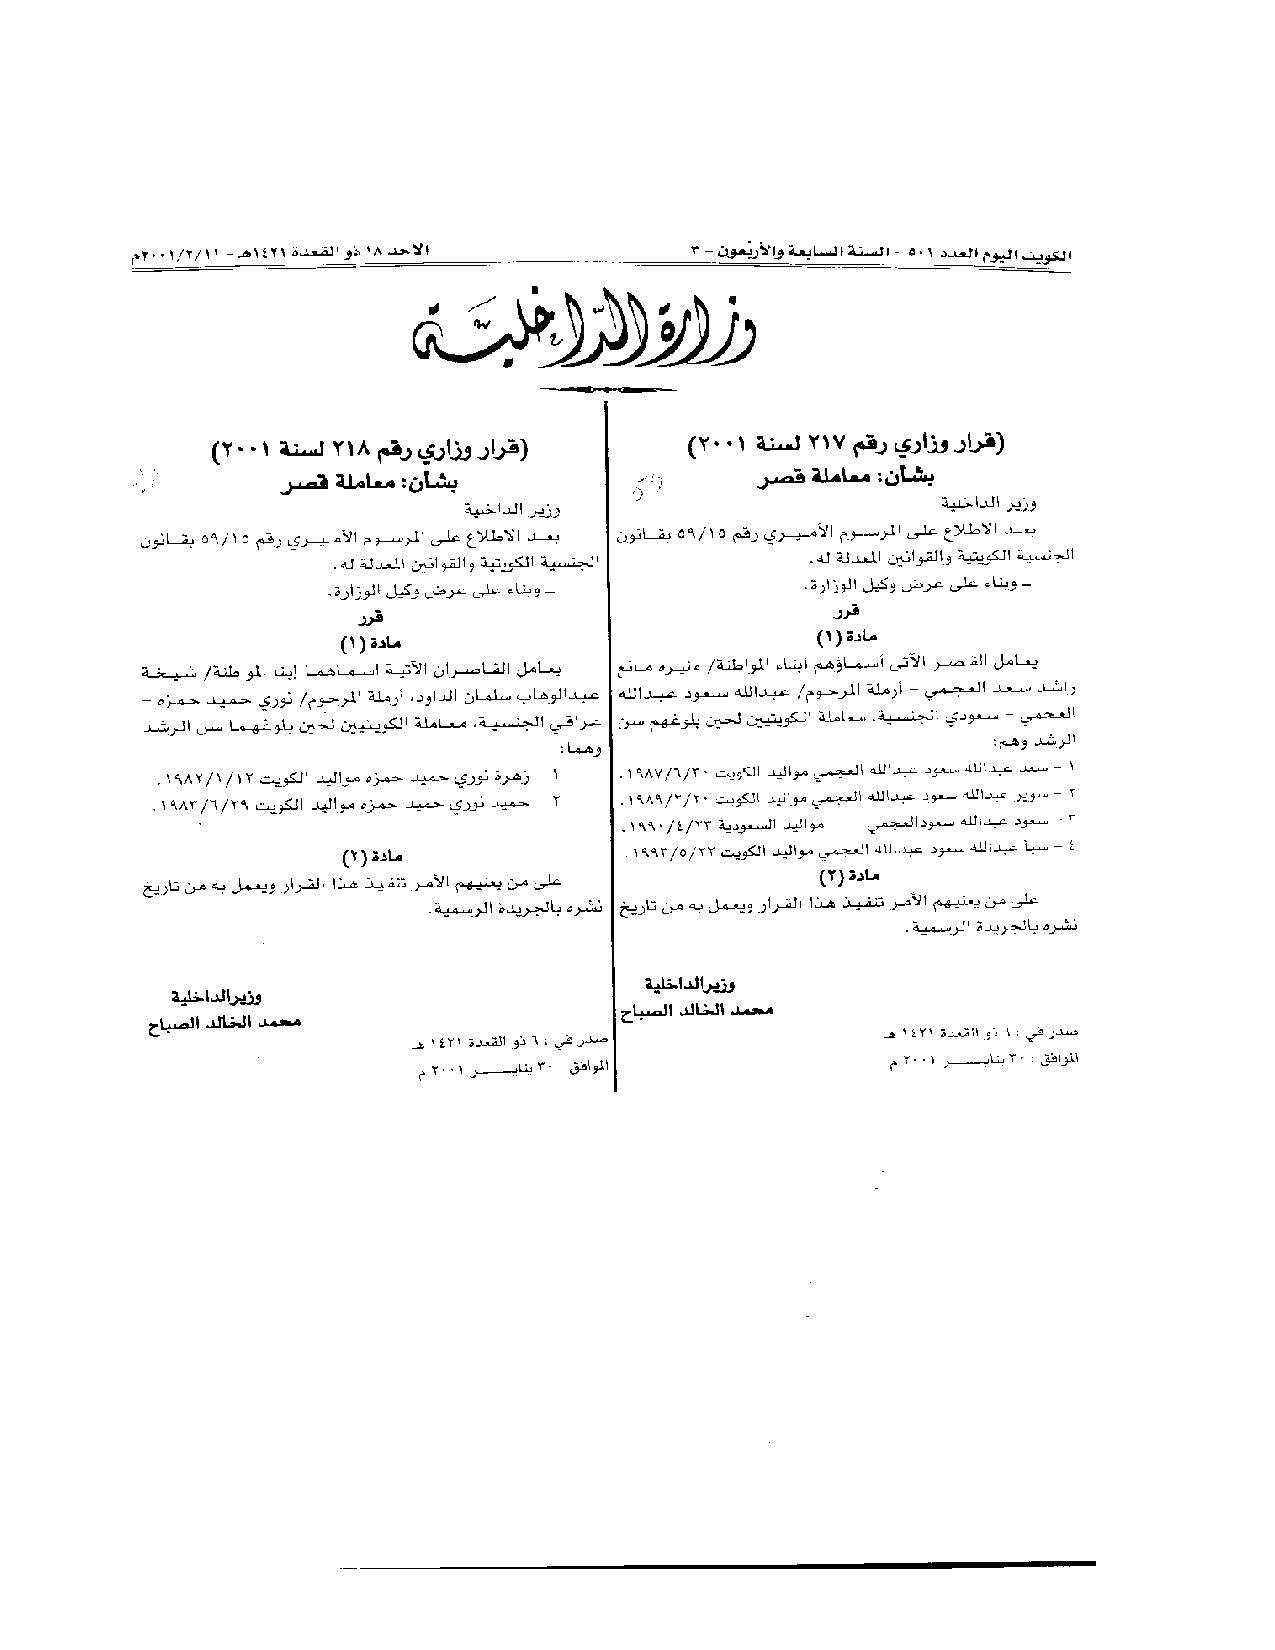 الكويت اليوم العدد ٥٠١ - السنة السابعة والأربعون - ٣
الاحد ١٨ ذو القعدة ١٤٢١هـ - ٢٠٠١/٢/١١م
وزارة الداخلية
(قرار وزاري رقم ٢١٧ لسنة ٢٠٠١)
بشأن: معاملة قصر
وزير الداخلية
بعد الاطلاع على المرسوم الأميري رقم ٥٩/١٥ بقانون
الجنسية الكويتية والقوانين المعدلة له.
– وبناء على عرض وكيل الوزارة.
قرر
مادة (١)
يعامل القصر الآتى أسماؤهم أبناء المواطنة/ منيره مانع
راشد سعد العجمي – أرملة المرحوم/ عبدالله سعود عبدالله
العجمي – سعودي الجنسية، معاملة الكويتيين لحين بلوغهم سن
الرشد وهم:
١ – سعد عبدالله سعود عبدالله العجمي مواليد الكويت ١٩٨٧/٦/٣٠.
٢ – عبدالله سعود عبدالله العجمي مواليد الكويت
٣ – سعود عبدالله سعود العجمي مواليد السعودية ١٩٩٠/٤/٢٣.
٤ – عبدالله سعود عبدالله العجمي مواليد الكويت
مادة (٢)
على من يعنيهم الأمر تنفيذ هذا القرار ويعمل به من تاريخ
نشره بالجريدة الرسمية.
وزير الداخلية
محمد الخالد الصباح
صدر في : ذو القعدة ١٤٢١ هـ
الموافق : ٣٠ ينايـــر ٢٠٠١ م
(قرار وزاري رقم ٢١٨ لسنة ٢٠٠١)
بشأن: معاملة قصر
وزير الداخلية
بعد الاطلاع على المرسوم الأميري رقم ٥٩/١٥ بقانون
الجنسية الكويتية والقوانين المعدلة له.
– وبناء على عرض وكيل الوزارة.
قرر
مادة (١)
يعامل القاصران الآتية اسماهما إبنا المواطنة/ شيخة
عبدالوهاب سلمان الداود، أرملة المرحوم/ نوري حميد حمزه –
عراقي الجنسية، معاملة الكويتيين لحين بلوغهما سن الرشد
وهما:
١ زهرة نوري حميد حمزه مواليد الكويت ١٩٨٢/١/١٢.
٢ حميد نوري حميد حمزه مواليد الكويت ١٩٨٣/٦/٢٩.
مادة (٢)
على من يعنيهم الأمر تنفيذ هذا القرار ويعمل به من تاريخ
نشره بالجريدة الرسمية.
وزير الداخلية
محمد الخالد الصباح
صدر في : ٦ ذو القعدة ١٤٢١ هـ
الموافق ٣٠ ينايـــر ٢٠٠١ م